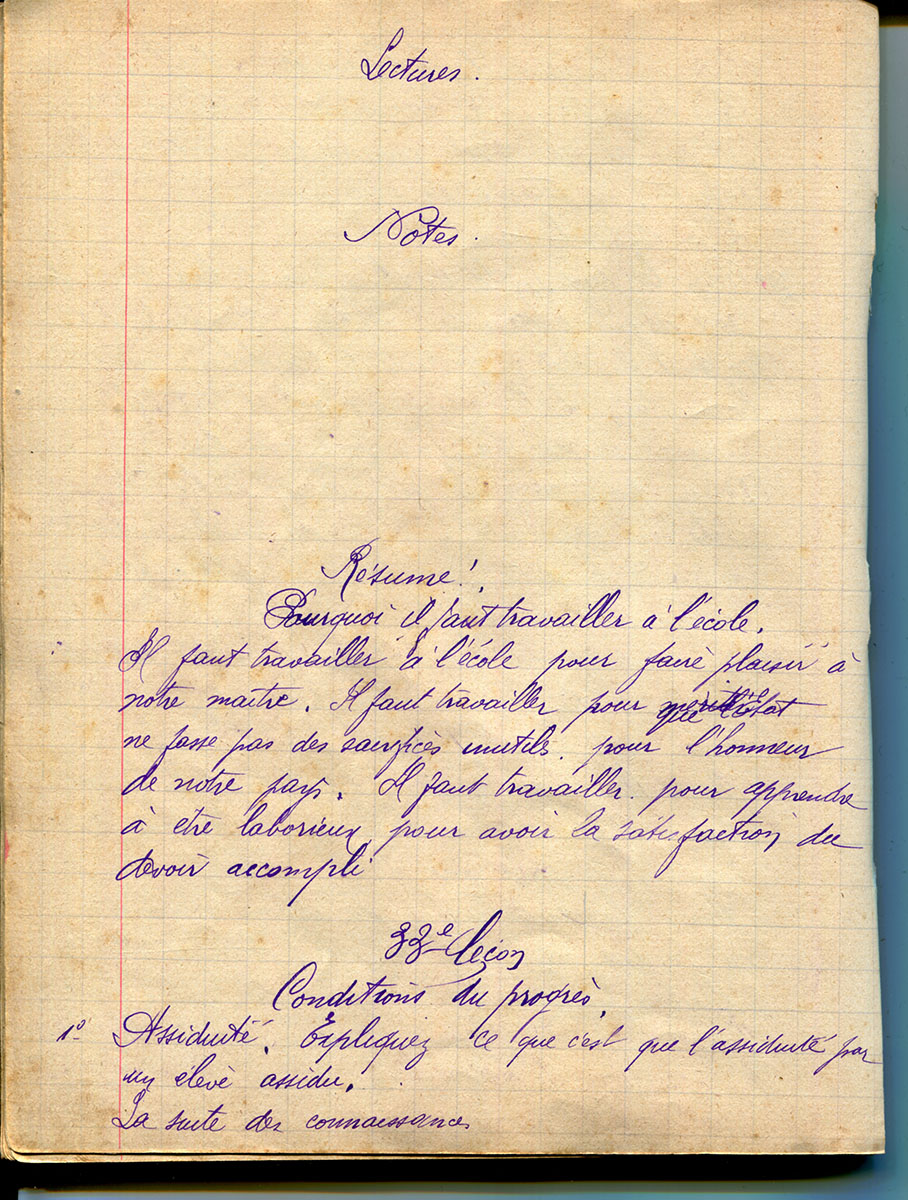 Lectures.
Notes.
Résumé.
Pourquoi il faut travailler à l'école.
Il faut travailler à l'école pour faire plaisir à
notre maître. Il faut travailler pour que l'état
ne fasse pas des sacrifices inutils. pour l'honneur
de notre pays. Il faut travailler. pour apprendre
à etre laborieux, pour avoir la satisfaction du
devoir accompli
33e leçon
Conditions du progrès.
1º Assiduité. Expliquez ce que c'est que l'assiduité par
un élève assidu.
La suite des connaissances